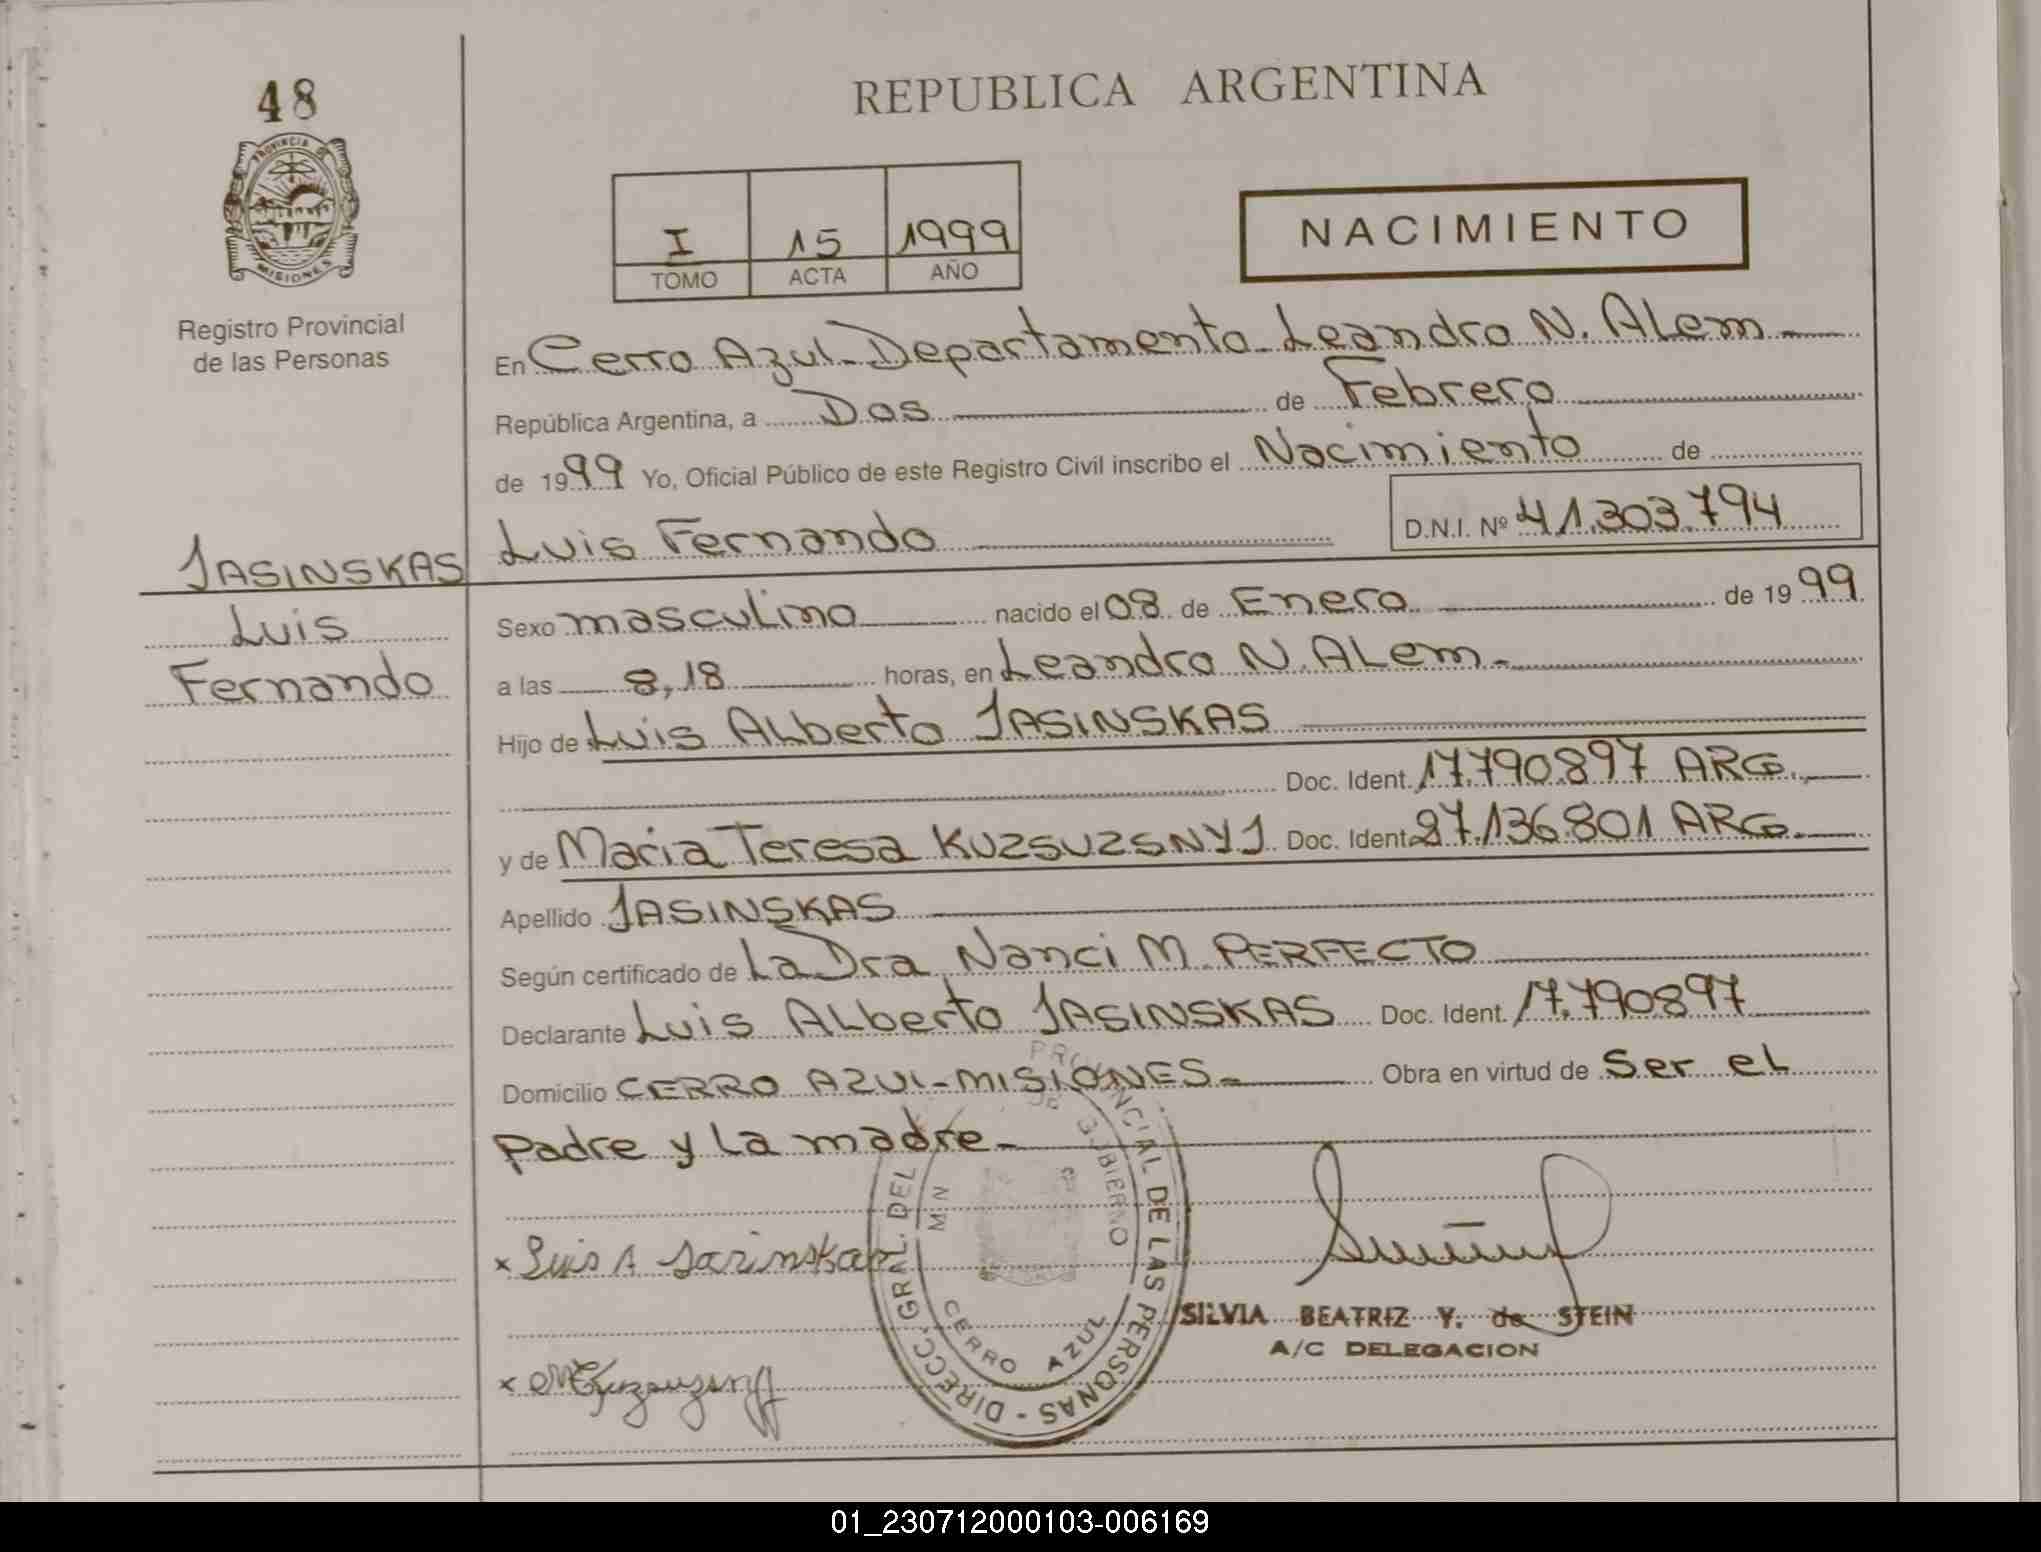 48
REPUBLICA ARGENTINA
PROVINCIA DE
MISIONES
I 15 1999
TOMO ACTA AÑO
NACIMIENTO
Registro Provincial
de las Personas
En Cerro Azul - Departamento - Leandro N. ALem -
República Argentina, a Dos de Febrero
de 1999 Yo, Oficial Público de este Registro Civil inscribo el Nacimiento de
JASINSKAS Luis Fernando D.N.I. Nº 41.303.794
Luis
Fernando
Sexo masculino nacido el 08 de Enero de 1999
a las 8,18 horas, en Leandro N. ALem -
Hijo de Luis ALberto JASINSKAS
Doc. Ident. 17.790.897 ARG.
y de Maria Teresa KUZSUZSNYJ Doc. Ident. 27.136.801 ARG.
Apellido JASINSKAS
Según certificado de La Dra Nanci M. PERFECTO
Declarante Luis ALberto JASINSKAS Doc. Ident. 17.790897
Domicilio CERRO AZUL - MISIONES - Obra en virtud de Ser eL
padre y La madre -
DIRECC. GRAL. DEL PROVINCIAL DE LAS PERSONAS -
GOBIERNO
CERRO AZUL
x Luis A Jasinskas
SILVIA BEATRIZ Y. de STEIN
A/C DELEGACION
01_230712000103-006169